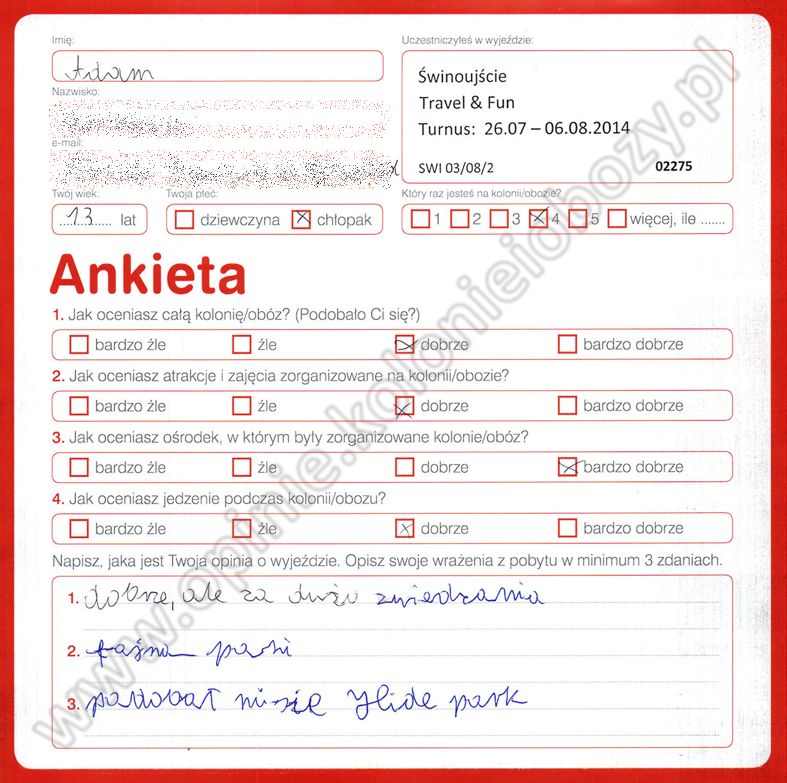 Imię:
Uczestniczyłeś w wyjeździe:
Adam
Świnoujście
Travel & Fun
Turnus: 26.07 – 06.08.2014
SWI 03/08/2
02275
Nazwisko:
e-mail:
Twój wiek:
Twoja płeć:
Który raz jesteś na kolonii/obozie?
13 lat
dziewczyna
chłopak
1 2 3 4 5 więcej, ile .......
Ankieta
1. Jak oceniasz całą kolonię/obóz? (Podobało Ci się?)
bardzo źle źle dobrze bardzo dobrze
2. Jak oceniasz atrakcje i zajęcia zorganizowane na kolonii/obozie?
bardzo źle źle dobrze bardzo dobrze
3. Jak oceniasz ośrodek, w którym były zorganizowane kolonie/obóz?
bardzo źle źle dobrze bardzo dobrze
4. Jak oceniasz jedzenie podczas kolonii/obozu?
bardzo źle źle dobrze bardzo dobrze
Napisz, jaka jest Twoja opinia o wyjeździe. Opisz swoje wrażenia z pobytu w minimum 3 zdaniach.
1. dobrze, ale za dużo zwiedzania
2. pani
3. podobał mi się park
www.opinie.kolonieiobozy.pl